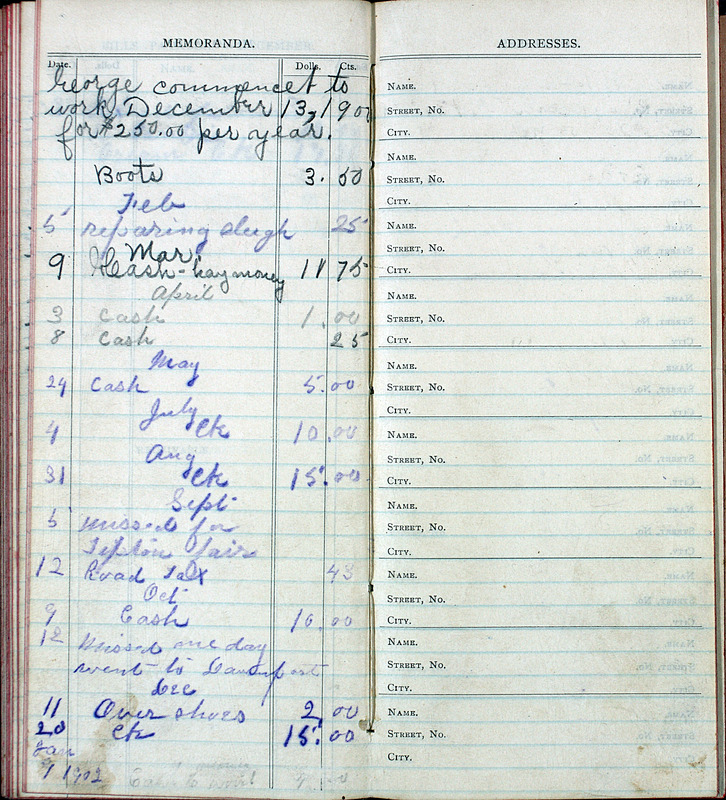 MEMORANDA.
Date. Dolls. Cts.
George commencet to
work December 13, 1900
for $250.00 per year.
Boots 3. 50
Feb
5 repairing sleigh 25
Mar.
9 Cash - hay money 11 75
April
3 Cash 1. 00
8 Cash 25
May
24 Cash 5. 00
July
4 Ck 10. 00
Aug
31 Ck 15. 00
Sept
5 missed for
Tipton fair
12 Road Tax 43
Oct
9 Cash 10. 00
12 Missed one day
went to Davenport
Dec
11 Over shoes 2. 00
20 Ck 15. 00
Jan
9 1902
ADDRESSES.
NAME.
STREET, NO.
CITY.
NAME.
STREET, NO.
CITY.
NAME.
STREET, NO.
CITY.
NAME.
STREET, NO.
CITY.
NAME.
STREET, NO.
CITY.
NAME.
STREET, NO.
CITY.
NAME.
STREET, NO.
CITY.
NAME.
STREET, NO.
CITY.
NAME.
STREET, NO.
CITY.
NAME.
STREET, NO.
CITY.